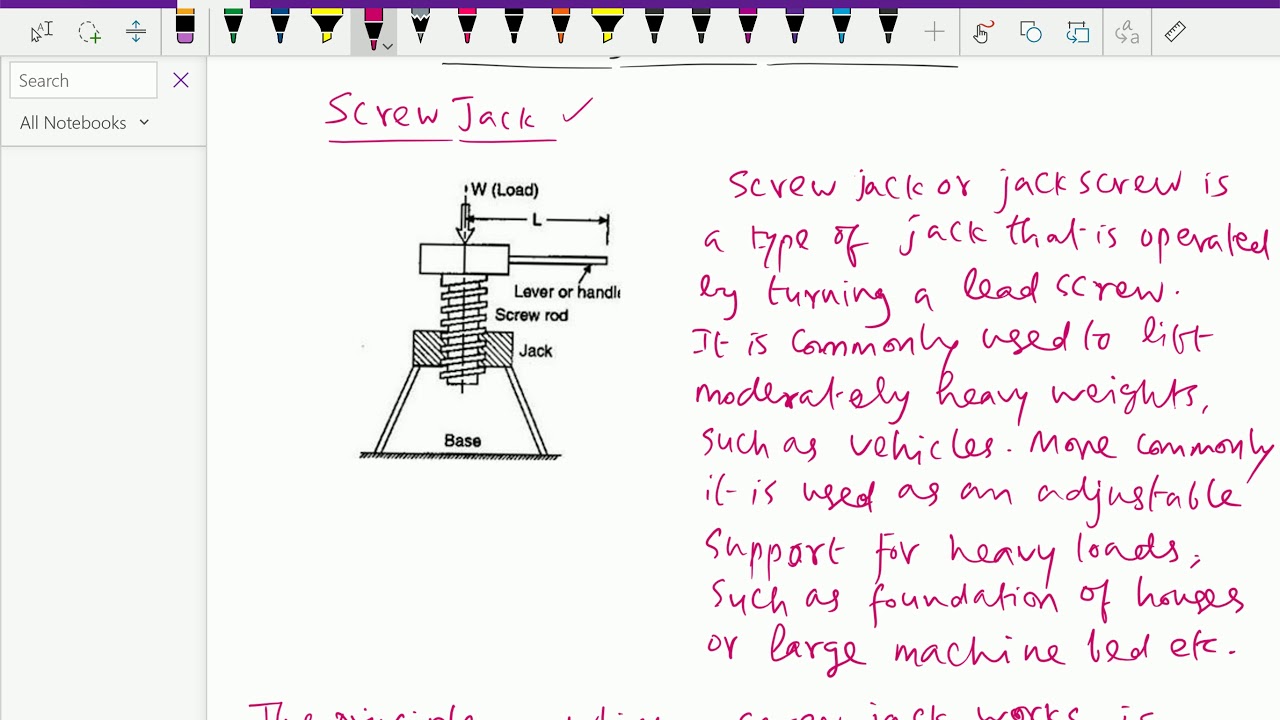 Search
All Notebooks
Screw Jack ✓
W (Load)
L
Lever or handle
Screw rod
Jack
Base
Screw jack or jackscrew is
a type of jack that is operated
by turning a lead screw.
It is commonly used to lift
moderately heavy weights,
such as vehicles. More commonly
it is used as an adjustable
support for heavy loads,
such as foundation of houses
or large machine bed etc.
The principle screw jack works is